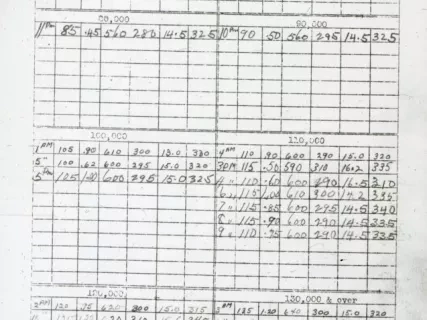 80,000 90,000
11 PM 85 .45 560 280 14.5 325 10 PM 90 .50 560 295 14.5 325
100,000 110,000
1 AM 105 .90 610 300 15.0 320 4 AM 110 .90 600 290 15.0 320
5 " 100 .62 600 295 15.0 320 3 PM 115 .50 590 310 16.2 335
5 PM 105 1.20 600 295 15.0 325 4 " 110 .60 600 290 16.5 310
6 " 115 .60 610 300 14.2 335
7 " 115 .85 600 295 14.5 340
8 " 115 .90 600 290 14.5 335
9 " 110 .95 600 290 14.5 335
120,000 130,000 & over
2 AM 120 .95 620 300 15.0 315 3 AM 125 1.20 640 300 15.0 320